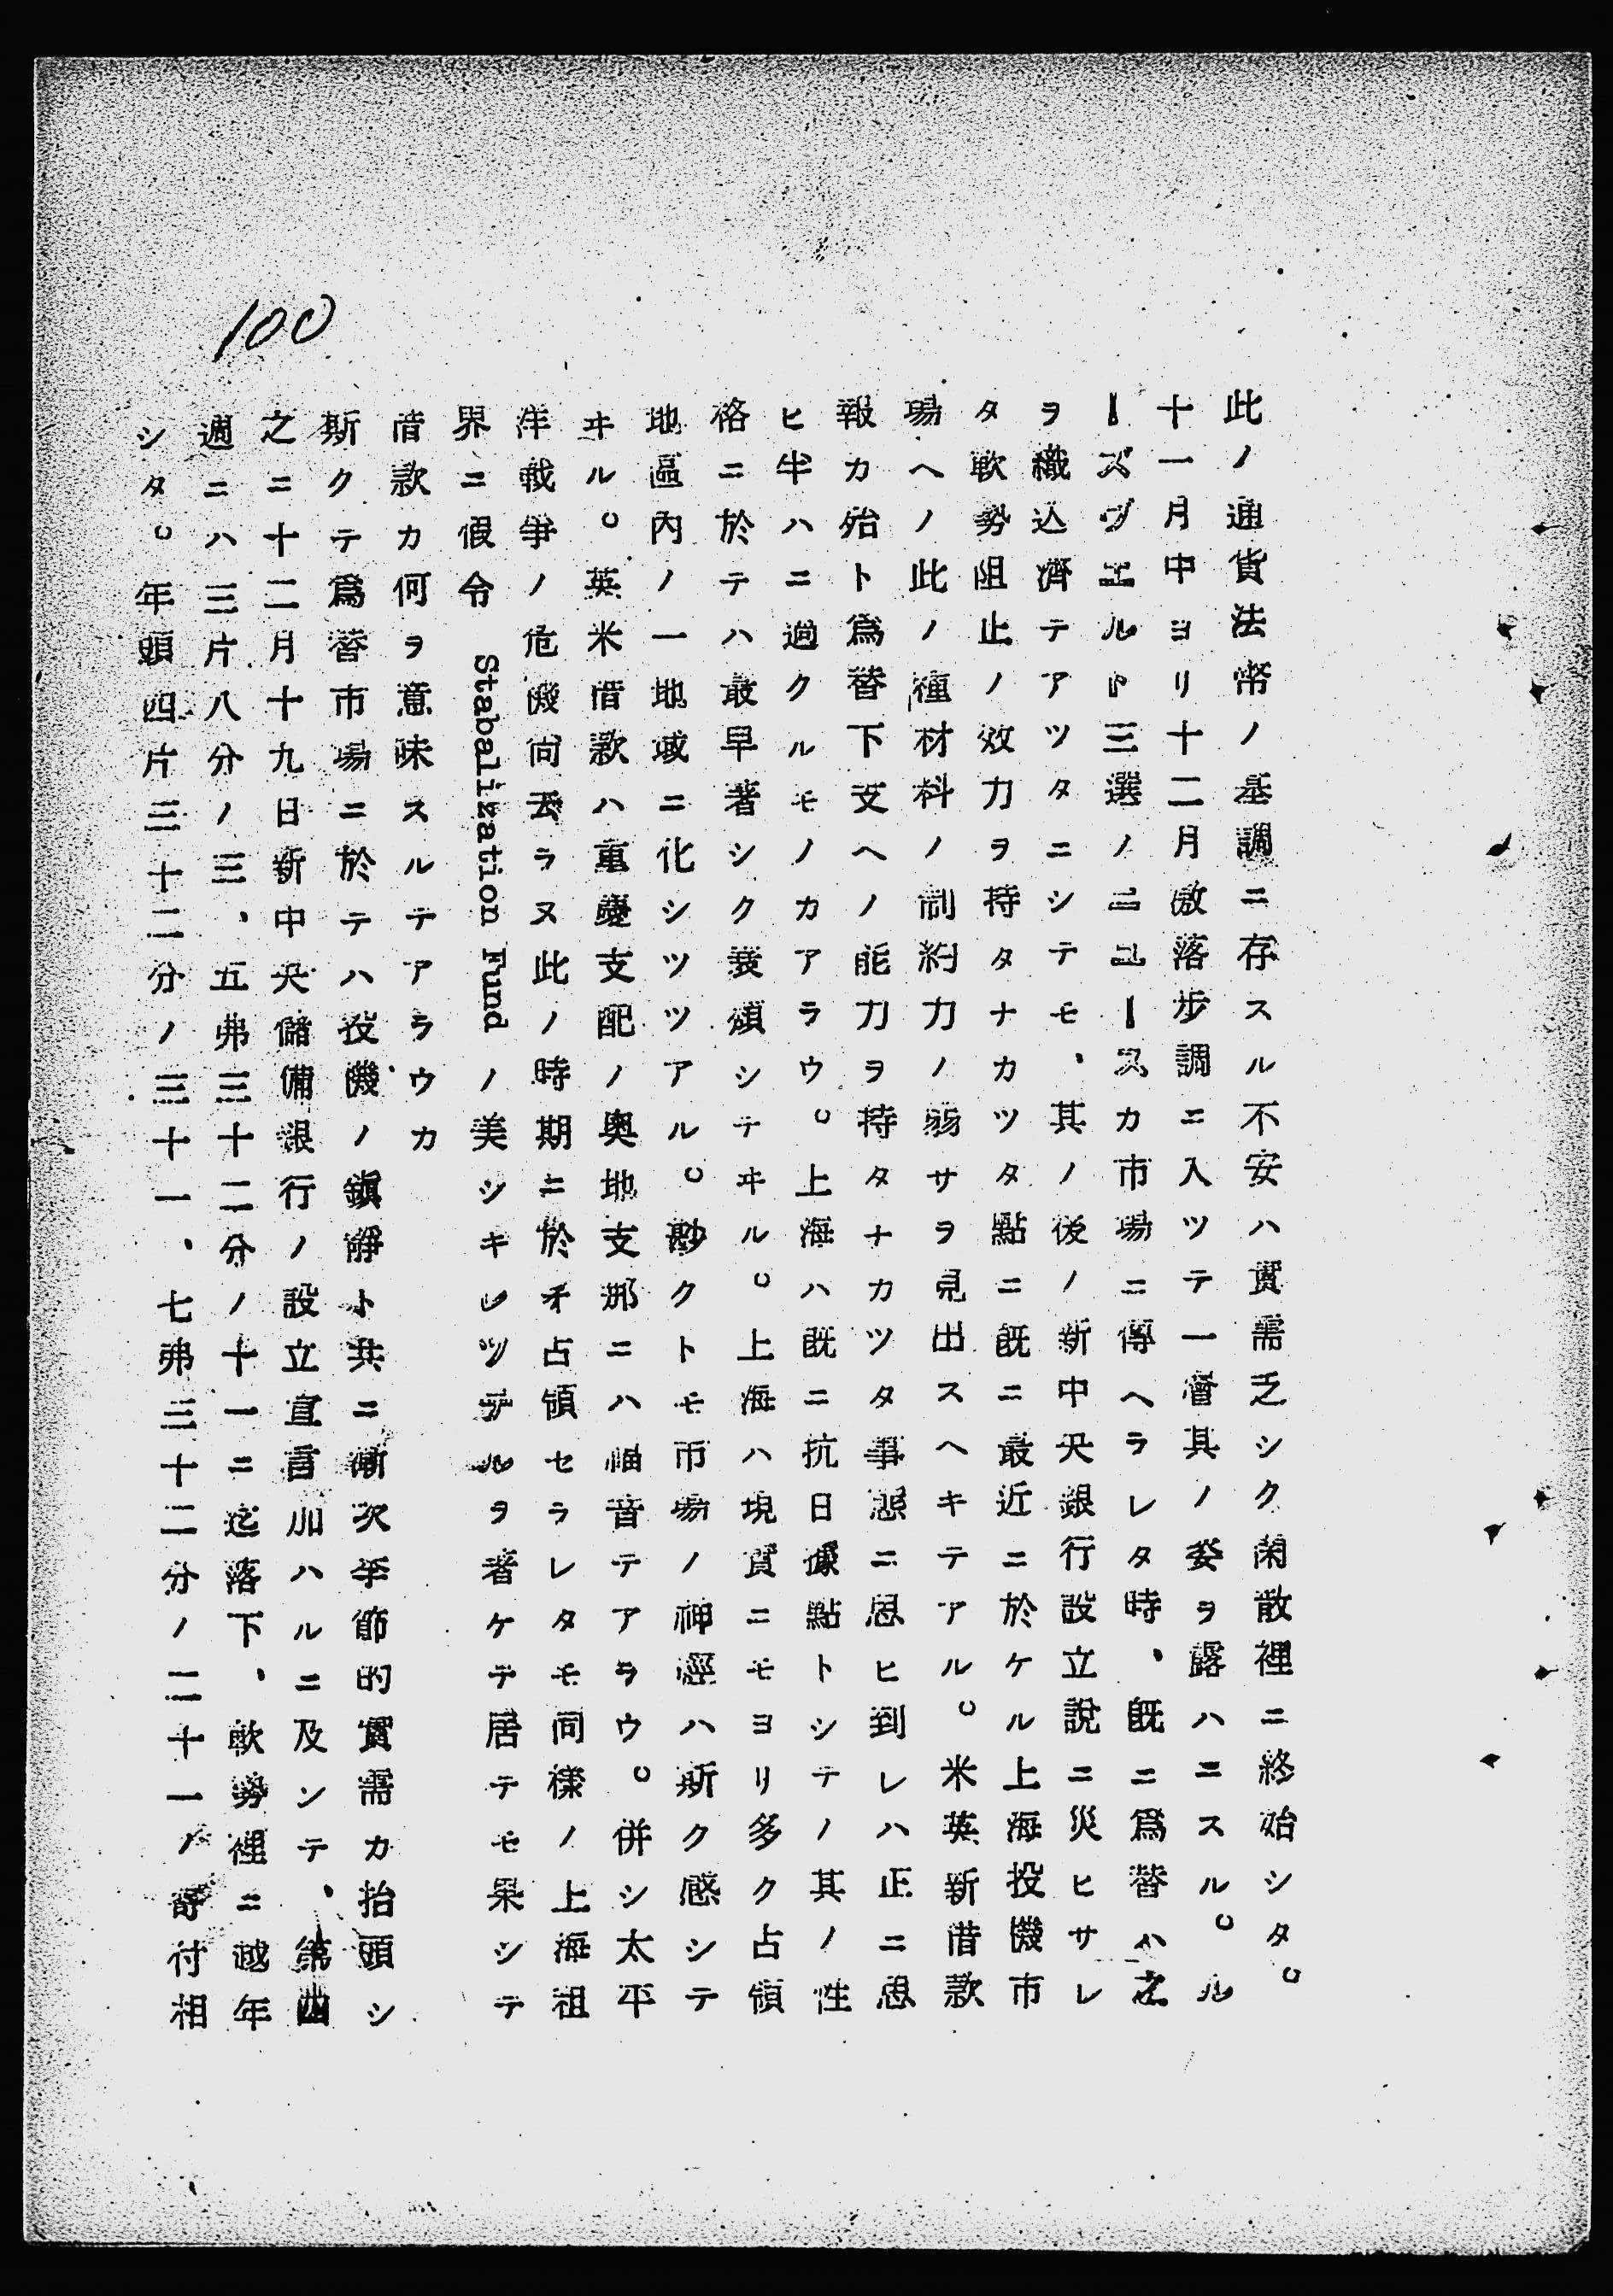 100
此ノ通貨法幣ノ基調ニ存スル不安ハ實需乏シク閑散裡ニ終始シタ。
十一月中ヨリ十二月激落歩調ニ入ツテ一層其ノ姿ヲ露ハニスル。ル
ーズヴエルト三選ノニユースカ市場ニ傳ヘラレタ時、既ニ爲替ハ之
ヲ織込濟テアツタニシテモ、其ノ後ノ新中央銀行設立說ニ災ヒサレ
タ軟勢阻止ノ效力ヲ持タナカツタ點ニ既ニ最近ニ於ケル上海投機市
場ヘノ此ノ種材料ノ制約力ノ弱サヲ見出スヘキテアル。米英新借款
報カ殆ト爲替下支ヘノ能力ヲ持タナカツタ事態ニ思ヒ到レハ正ニ思
ヒ半ハニ過クルモノカアラウ。上海ハ既ニ抗日據點トシテノ其ノ性
格ニ於テハ最早著シク衰頽シテヰル。上海ハ現實ニモヨリ多ク占領
地區內ノ一地域ニ化シツツアル。尠クトモ市場ノ神經ハ斯ク感シテ
ヰル。英米借款ハ重慶支配ノ奥地支那ニハ福音テアラウ。併シ太平
洋戰爭ノ危機尚去ラヌ此ノ時期ニ於キ占領セラレタモ同樣ノ上海租
界ニ假令 Stabalization Fund ノ美シキレツテルヲ著ケテ居テモ果シテ
借款カ何ヲ意味スルテアラウカ
斯クテ爲替市場ニ於テハ投機ノ鎭靜ト共ニ漸次季節的實需カ抬頭シ
之ニ十二月十九日新中央儲備銀行ノ設立宣言加ハルニ及ンテ、第四
週ニハ三片八分ノ三、五弗三十二分ノ十一ニ迄落下、軟勢裡ニ越年
シタ。年頭四片三十二分ノ三十一、七弗三十二分ノ二十一ノ寄付相